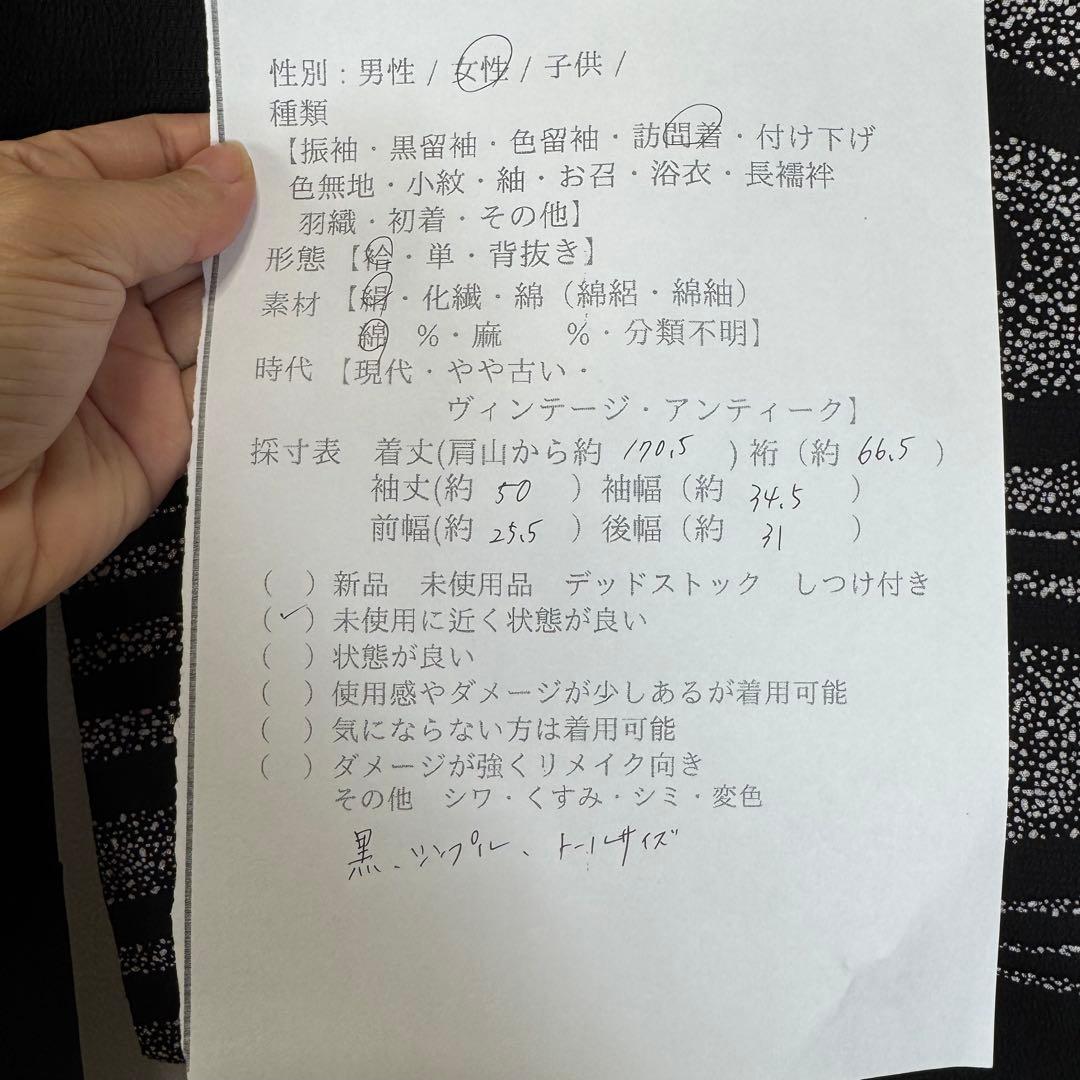 性別：男性 / 女性 / 子供 /
種類
【振袖・黒留袖・色留袖・訪問着・付け下げ
色無地・小紋・紬・お召・浴衣・長襦袢
羽織・初着・その他】
形態 【袷・単・背抜き】
素材 【絹・化繊・綿（綿絽・綿紬）
綿 %・麻 %・分類不明】
時代 【現代・やや古い・
ヴィンテージ・アンティーク】
採寸表 着丈(肩山から約 170.5 ) 裄（約 66.5 ）
袖丈(約 50 ）袖幅（約 34.5 ）
前幅(約 25.5 ）後幅（約 31 ）
( ）新品 未使用品 デッドストック しつけ付き
(✓）未使用に近く状態が良い
( ）状態が良い
( ）使用感やダメージが少しあるが着用可能
( ）気にならない方は着用可能
( ）ダメージが強くリメイク向き
その他 シワ・くすみ・シミ・変色
黒、シンプル、トールサイズ